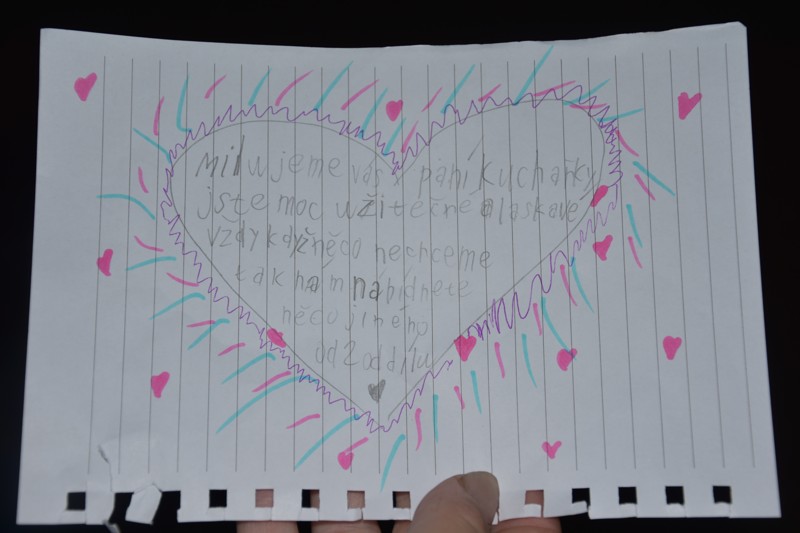 milujeme vás paní kuchařky
jste moc užitečné a laskavé
vždy když něco nechceme
tak nám nabídnete
něco jiného
od 2 oddílu